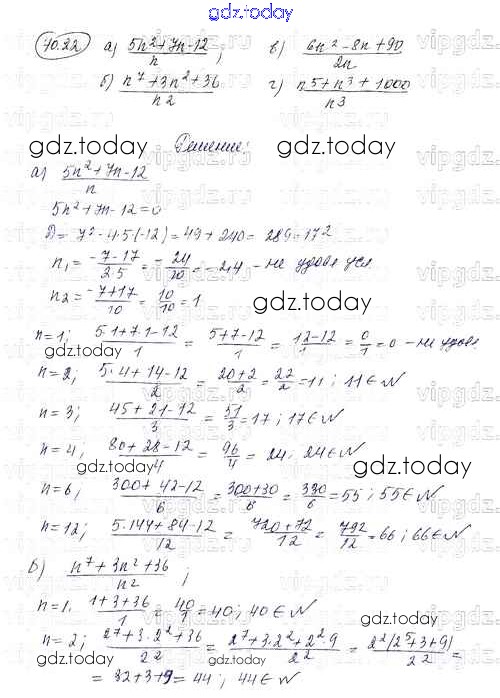 gdz.today
70.22 а) (5n²+7n-12)/n ; в) (6n²-8n+90)/2n
б) (n⁷+3n²+36)/n2 г) (n5+n³+1000)/n3
gdz.today gdz.today
Решение:
gdz.today vipgdz.ru
а) (5n²+7n-12)/n
5n²+7n-12=0
D= 7²-4·5(-12)=49+240= 289=17²
n₁= (-7-17)/2·5 = -24/10 = -2,4 - не удовл усл
n2= (-7+17)/10 = 10/10 = 1
gdz.today
n=1; (5·1+7·1-12)/1 = (5+7-12)/1 = (12-12)/1 = 0/1 = 0 - не удовл
gdz.today
n=2; (5·4+14-12)/2 = (20+2)/2 = 22/2 = 11; 11∈N
n=3; (45+21-12)/3 = 51/3 = 17; 17∈N
n=4; (80+28-12)/4 = 96/4 = 24. 24∈N
gdz.today gdz.today
n=6; (300+42-12)/6 = (300+30)/6 = 330/6 = 55; 55∈N
n=12; (5·144+84-12)/12 = (720+72)/12 = 792/12 = 66; 66∈N
gdz.today
б) (n⁷+3n²+36)/n2 ;
gdz.today
n=1. (1+3+36)/1 = 40/1 = 40; 40∈N
n=2; (2⁷+3·2²+36)/2² = (2⁷+3·2²+2²·9)/2² = 2²(2⁵+3+9)/2² =
gdz.today gdz.today
= 32+3+9= 44; 44∈N